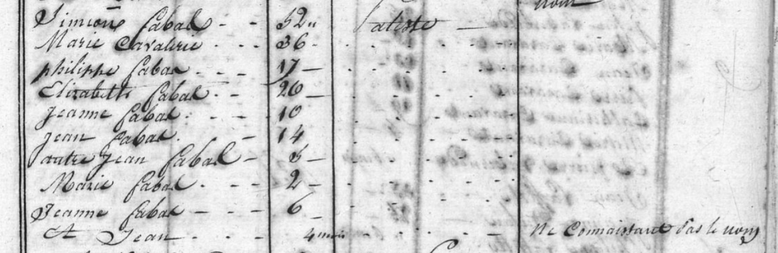 nom
Simeon Sabal - - 52
Marie Cavalerie - - - 36 -
philippe Sabal - - - 17 -
Elizabette Sabal - - 20 -
Jeanne Sabal - - - 10
Jean Sabal - 14
autre Jean Sabal - 5 -
Marie Sabal - - - 2 -
Jeanne Sabal - - - 6 -
et Jean - - - 4 mois ne Connaissant Pas le nom